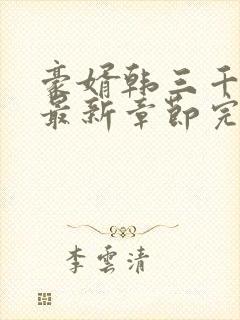 豪婿韩三千
最新章節完
李雲清